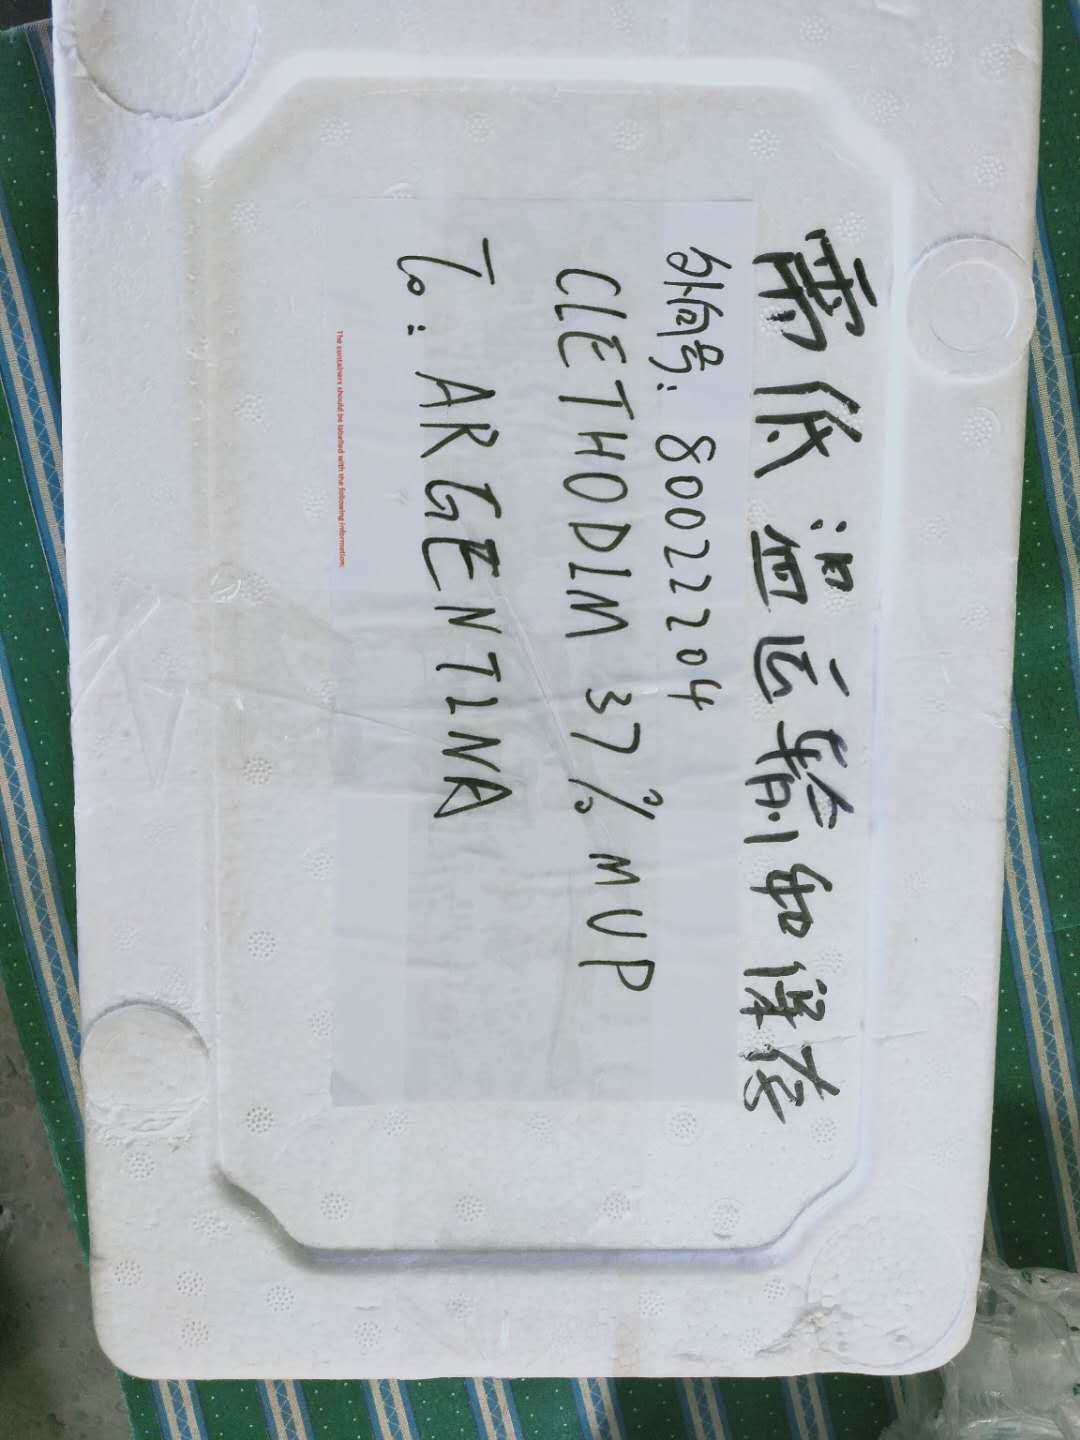 需低温运输和保存
外向号: 80022204
CLETHODIM 37% MUP
To: ARGENTINA
The containers should be labelled with the following information: